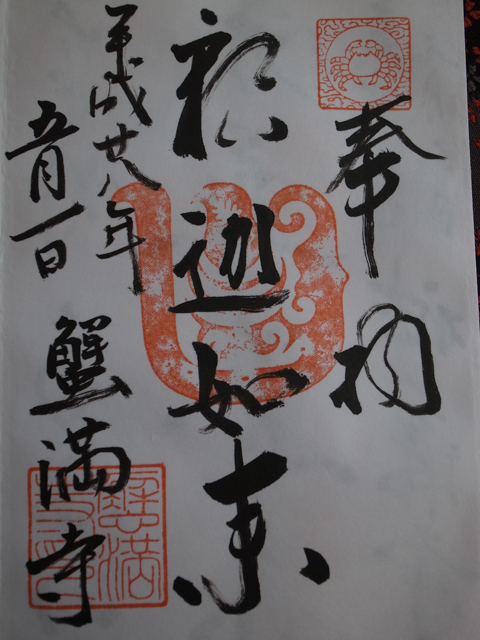 奉拝
釈迦如来
平成廿八年
五月一日
蟹満寺